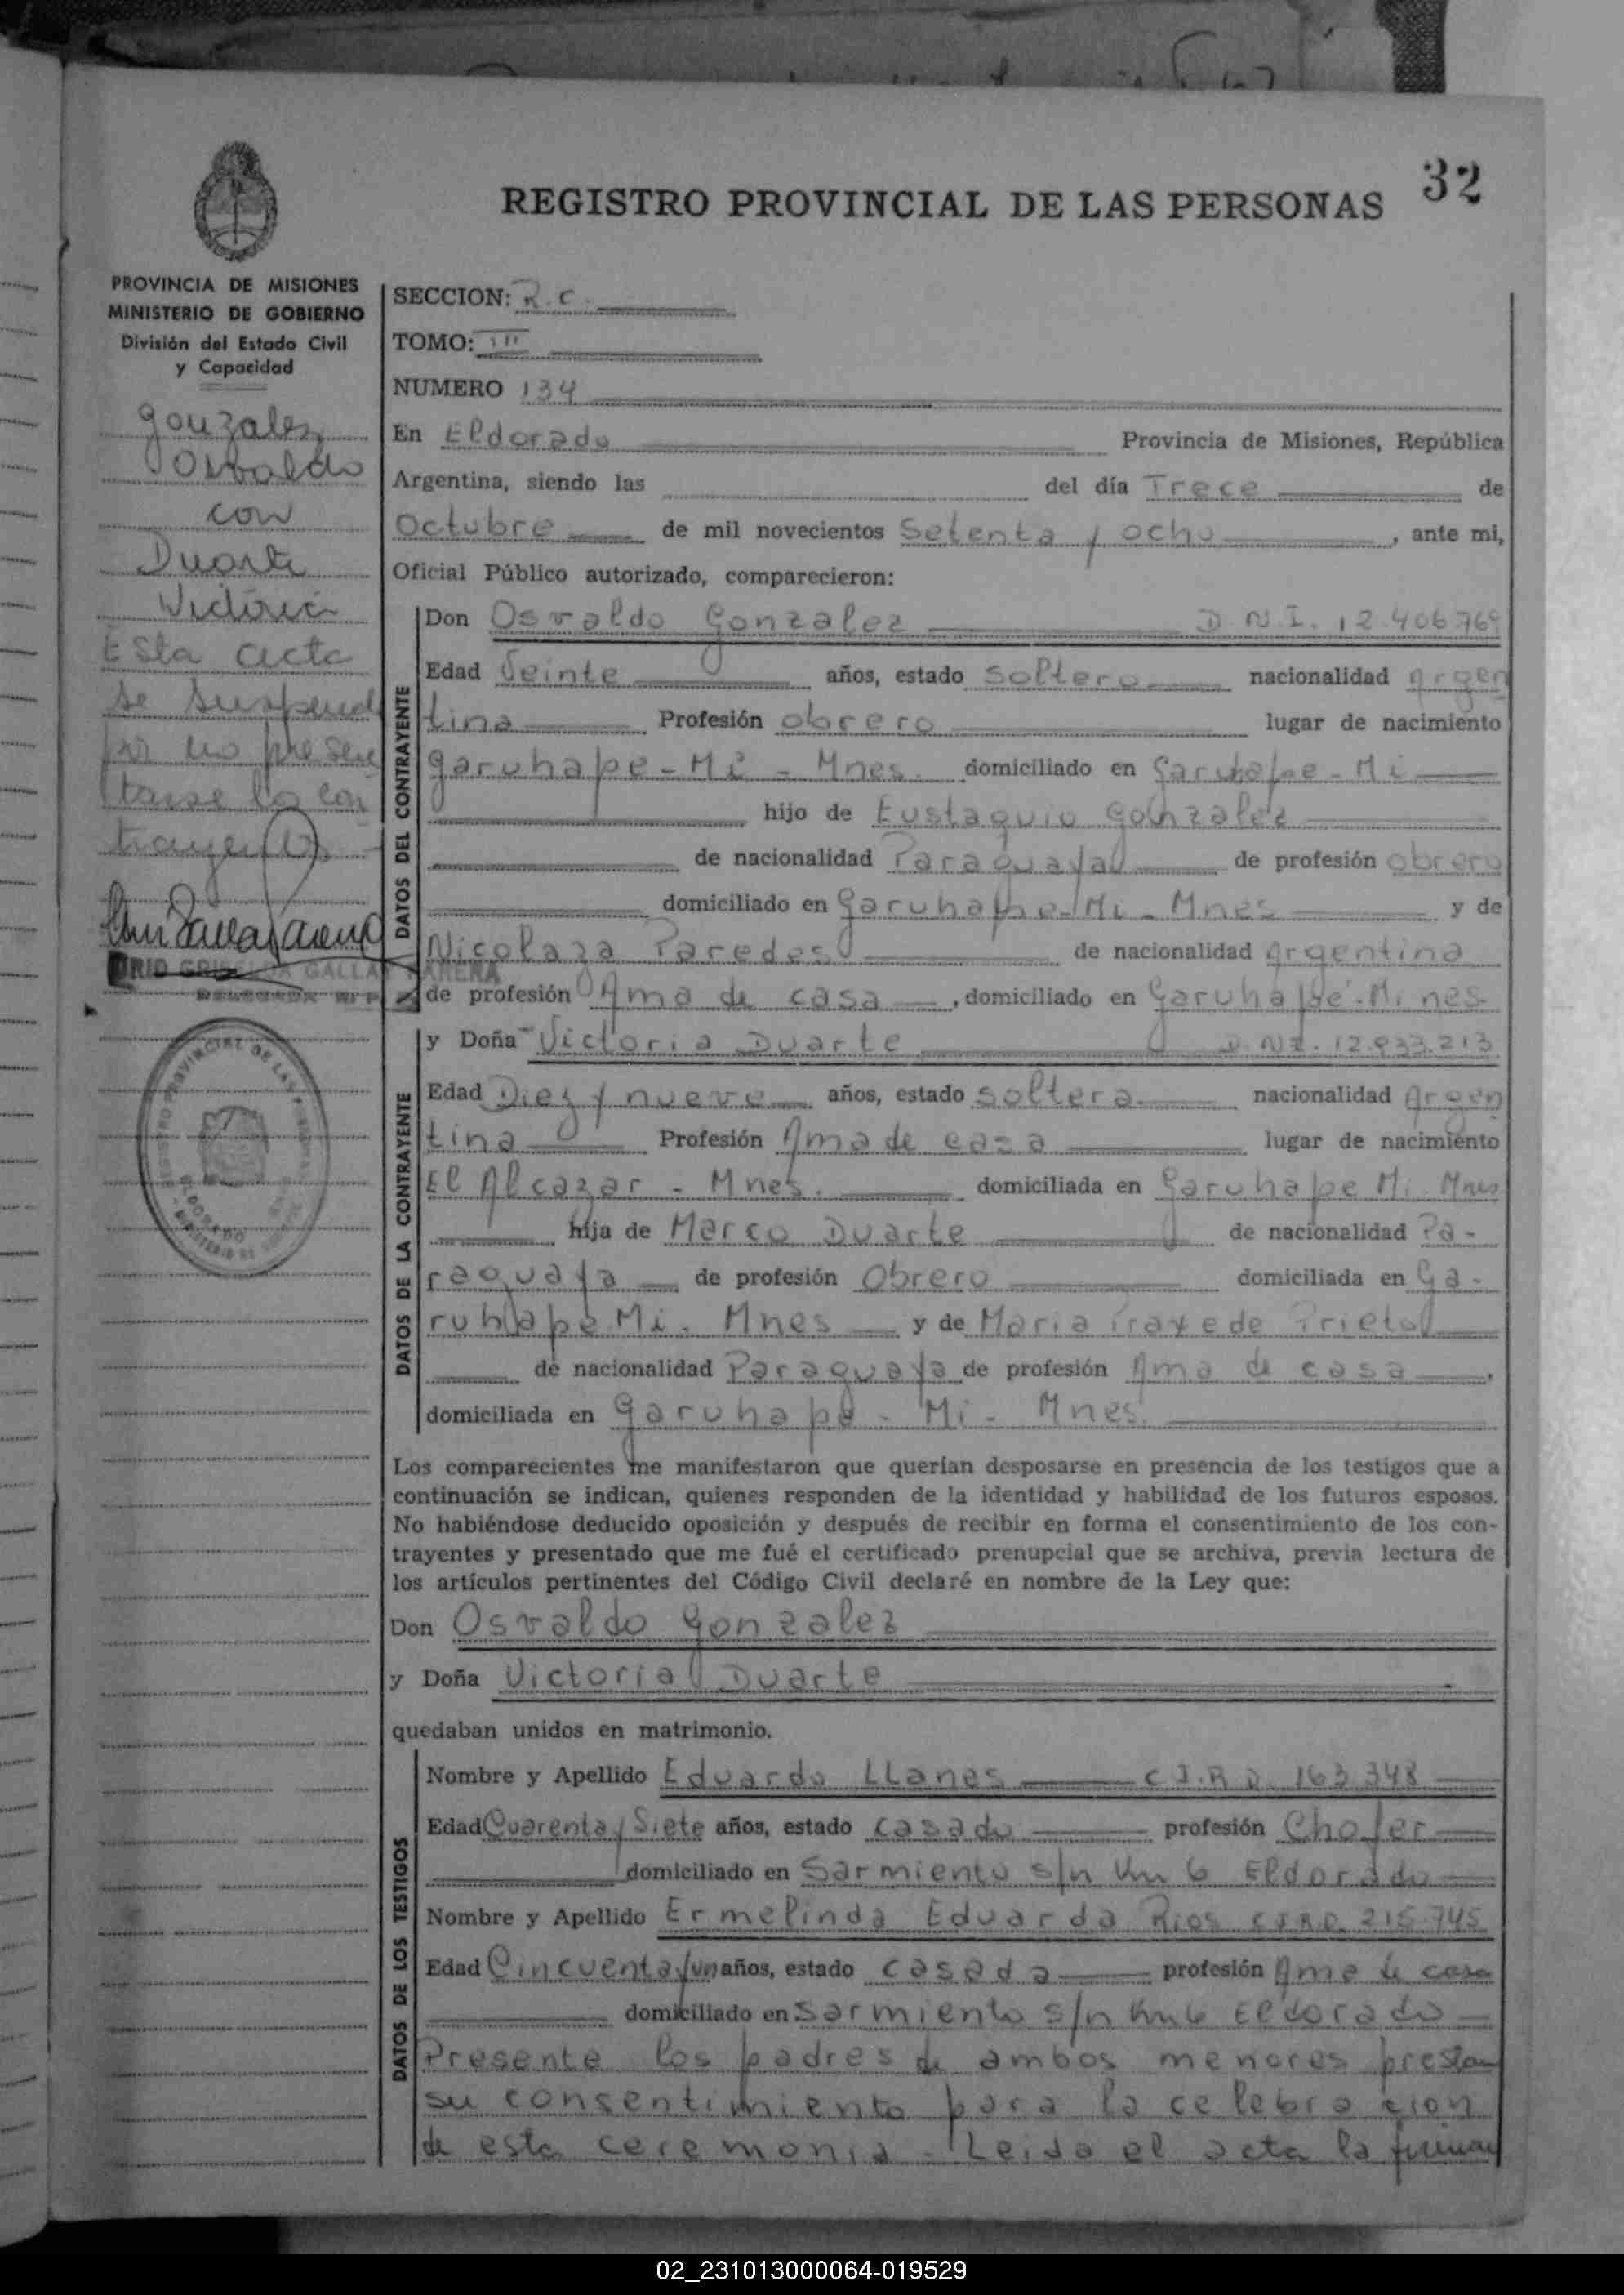 32
REGISTRO PROVINCIAL DE LAS PERSONAS
PROVINCIA DE MISIONES
MINISTERIO DE GOBIERNO
División del Estado Civil
y Capacidad
Gonzalez
Osvaldo
con
Duarte
Victoria
Esta acta
se suspende
por no presen
tarse los con
trayentes
GRISELDA GALLAY ARENA
REGISTRO PROVINCIAL DE LAS PERSONAS
ELDORADO
SECCION: R.C.
TOMO: III
NUMERO 134
En Eldorado Provincia de Misiones, República
Argentina, siendo las del día Trece de
Octubre de mil novecientos Setenta y ocho, ante mi,
Oficial Público autorizado, comparecieron:
DATOS DEL CONTRAYENTE
Don Osvaldo Gonzalez D.N.I. 12.406.769
Edad Veinte años, estado Soltero nacionalidad Argen
tina Profesión obrero lugar de nacimiento
Garuhape-Mi - Mnes. domiciliado en Garuhape-Mi
hijo de Eustaquio Gonzalez
de nacionalidad Paraguaya de profesión obrero
domiciliado en Garuhape-Mi-Mnes y de
Nicolaza Paredes de nacionalidad Argentina
de profesión Ama de casa, domiciliado en Garuhape-Mi nes
DATOS DE LA CONTRAYENTE
y Doña Victoria Duarte D.N.I. 12.933.213
Edad Diez y nueve años, estado Soltera nacionalidad Argen
tina Profesión Ama de casa lugar de nacimiento
El Alcazar - Mnes. domiciliada en Garuhape Mi. Mnes
hija de Marco Duarte de nacionalidad Pa-
raguaya de profesión Obrero domiciliada en Ga-
ruhape Mi. Mnes y de Maria Praxede Prieto
de nacionalidad Paraguaya de profesión Ama de casa,
domiciliada en Garuhape - Mi - Mnes
Los comparecientes me manifestaron que querían desposarse en presencia de los testigos que a
continuación se indican, quienes responden de la identidad y habilidad de los futuros esposos.
No habiéndose deducido oposición y después de recibir en forma el consentimiento de los con-
trayentes y presentado que me fué el certificado prenupcial que se archiva, previa lectura de
los artículos pertinentes del Código Civil declaré en nombre de la Ley que:
Don Osvaldo Gonzalez
y Doña Victoria Duarte
quedaban unidos en matrimonio.
DATOS DE LOS TESTIGOS
Nombre y Apellido Eduardo LLanes C.I.R.D. 163.348
Edad Cuarenta y Siete años, estado casado profesión Chofer
domiciliado en Sarmiento s/n Km 6 Eldorado
Nombre y Apellido Ermelinda Eduarda Rios C.I.R.D. 215.745
Edad Cincuenta y un años, estado casada profesión Ama de casa
domiciliado en Sarmiento s/n Km 6 Eldorado
Presente los padres de ambos menores prestan
su consentimiento para la celebracion
de esta ceremonia - Leida el acta la firman
02_231013000064-019529